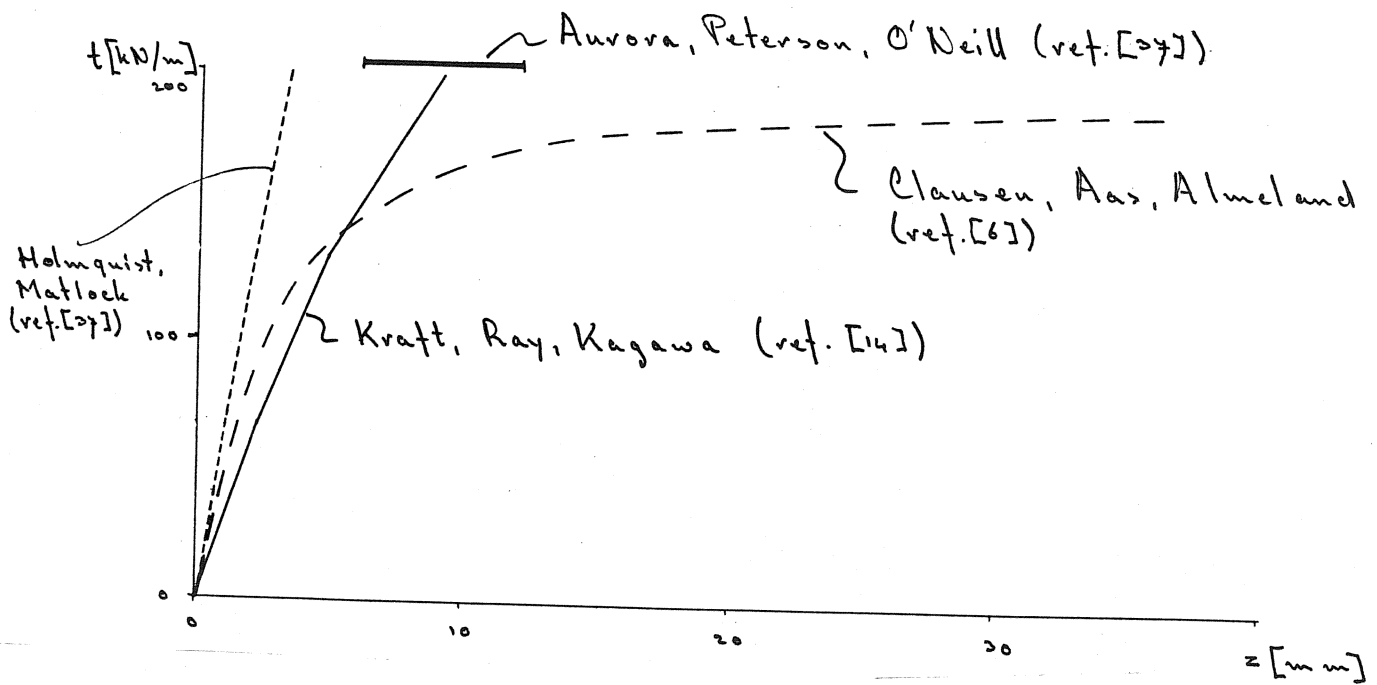 Aurora, Peterson, O'Neill (ref. [37])
t[kN/m]
200
Clausen, Aas, Almeland
(ref. [6])
Holmquist,
Matlock
(ref. [37])
100
Kraft, Ray, Kagawa (ref. [14])
0
0
10
20
30
z [mm]